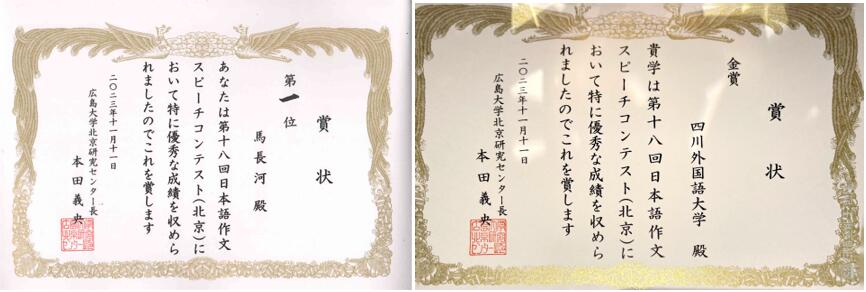 賞状
第一位
馬長河 殿
あなたは第十八回日本語作文
スピーチコンテスト(北京)に
おいて特に優秀な成績を収めら
れましたのでこれを賞します
二〇二三年十一月十一日
広島大学北京研究センター長
本田義央
賞状
金賞
四川外国語大学 殿
貴学は第十八回日本語作文
スピーチコンテスト(北京)に
おいて特に優秀な成績を収めら
れましたのでこれを賞します
二〇二三年十一月十一日
広島大学北京研究センター長
本田義央